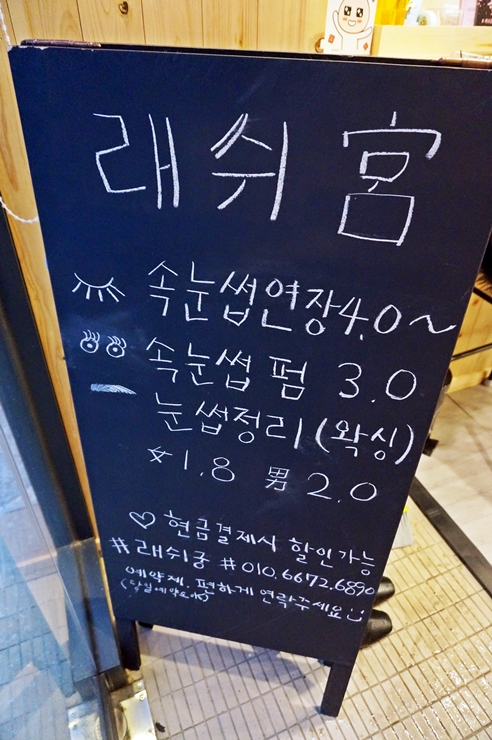 래쉬宮
속눈썹연장4.0~
속눈썹 펌 3.0
눈썹정리(왁싱)
女1.8 男2.0
♡ 현금결제시 할인가능
#래쉬궁 #010.6672.6890
예약제. 편하게 연락주세요
(당일예약도OK)